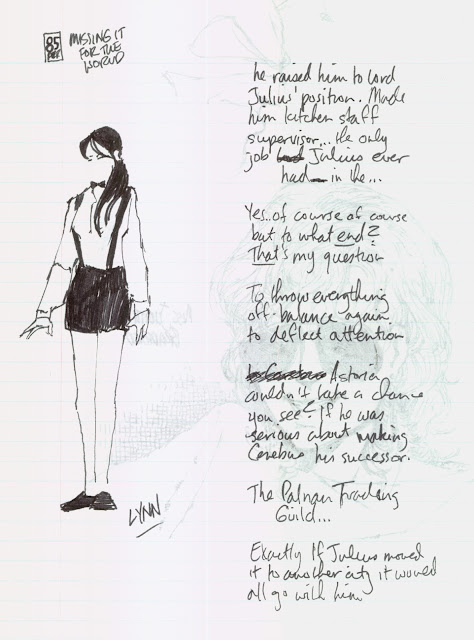 85
MISSING IT
FOR THE
WORLD
he raised him to lord
Julius' position. Made
him kitchen staff
supervisor... the only
job Julius ever
had in the...
Yes..of course of course
but to what end?
That's my question
To throw everything
off-balance again
to deflect attention
Astoria
couldn't take a chance
you see? If he was
serious about making
Cerebus his successor.
The Palnan Trading
Guild...
Exactly If Julius moved
it to another city it would
all go with him
LYNN